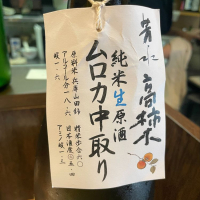 純米生原酒
ムロカ中取り
原料米兵庫山田錦
精米歩合六〇
アルコール分一八・六
日本酒度⊕五
酸一・六
アミノ酸一・三